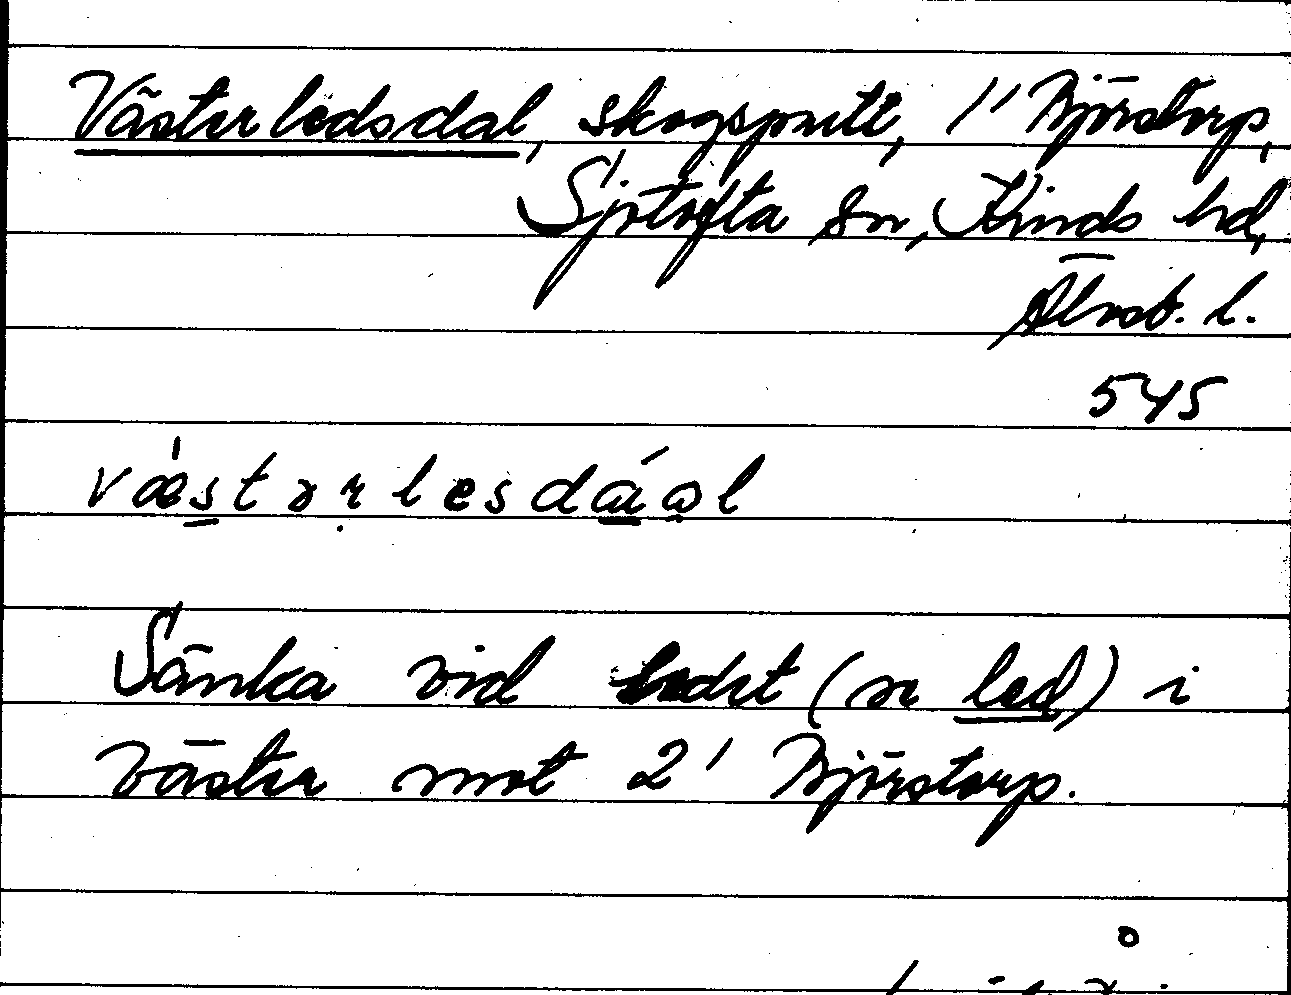 Västerledsdal, skogsputt, 1' Björstorp,
Sjötofta sn, Kinds hd,
Älvsb. l.
545
västərlesdáal
Sänka vid ledet (se led) i
väster mot 2' Björstorp.